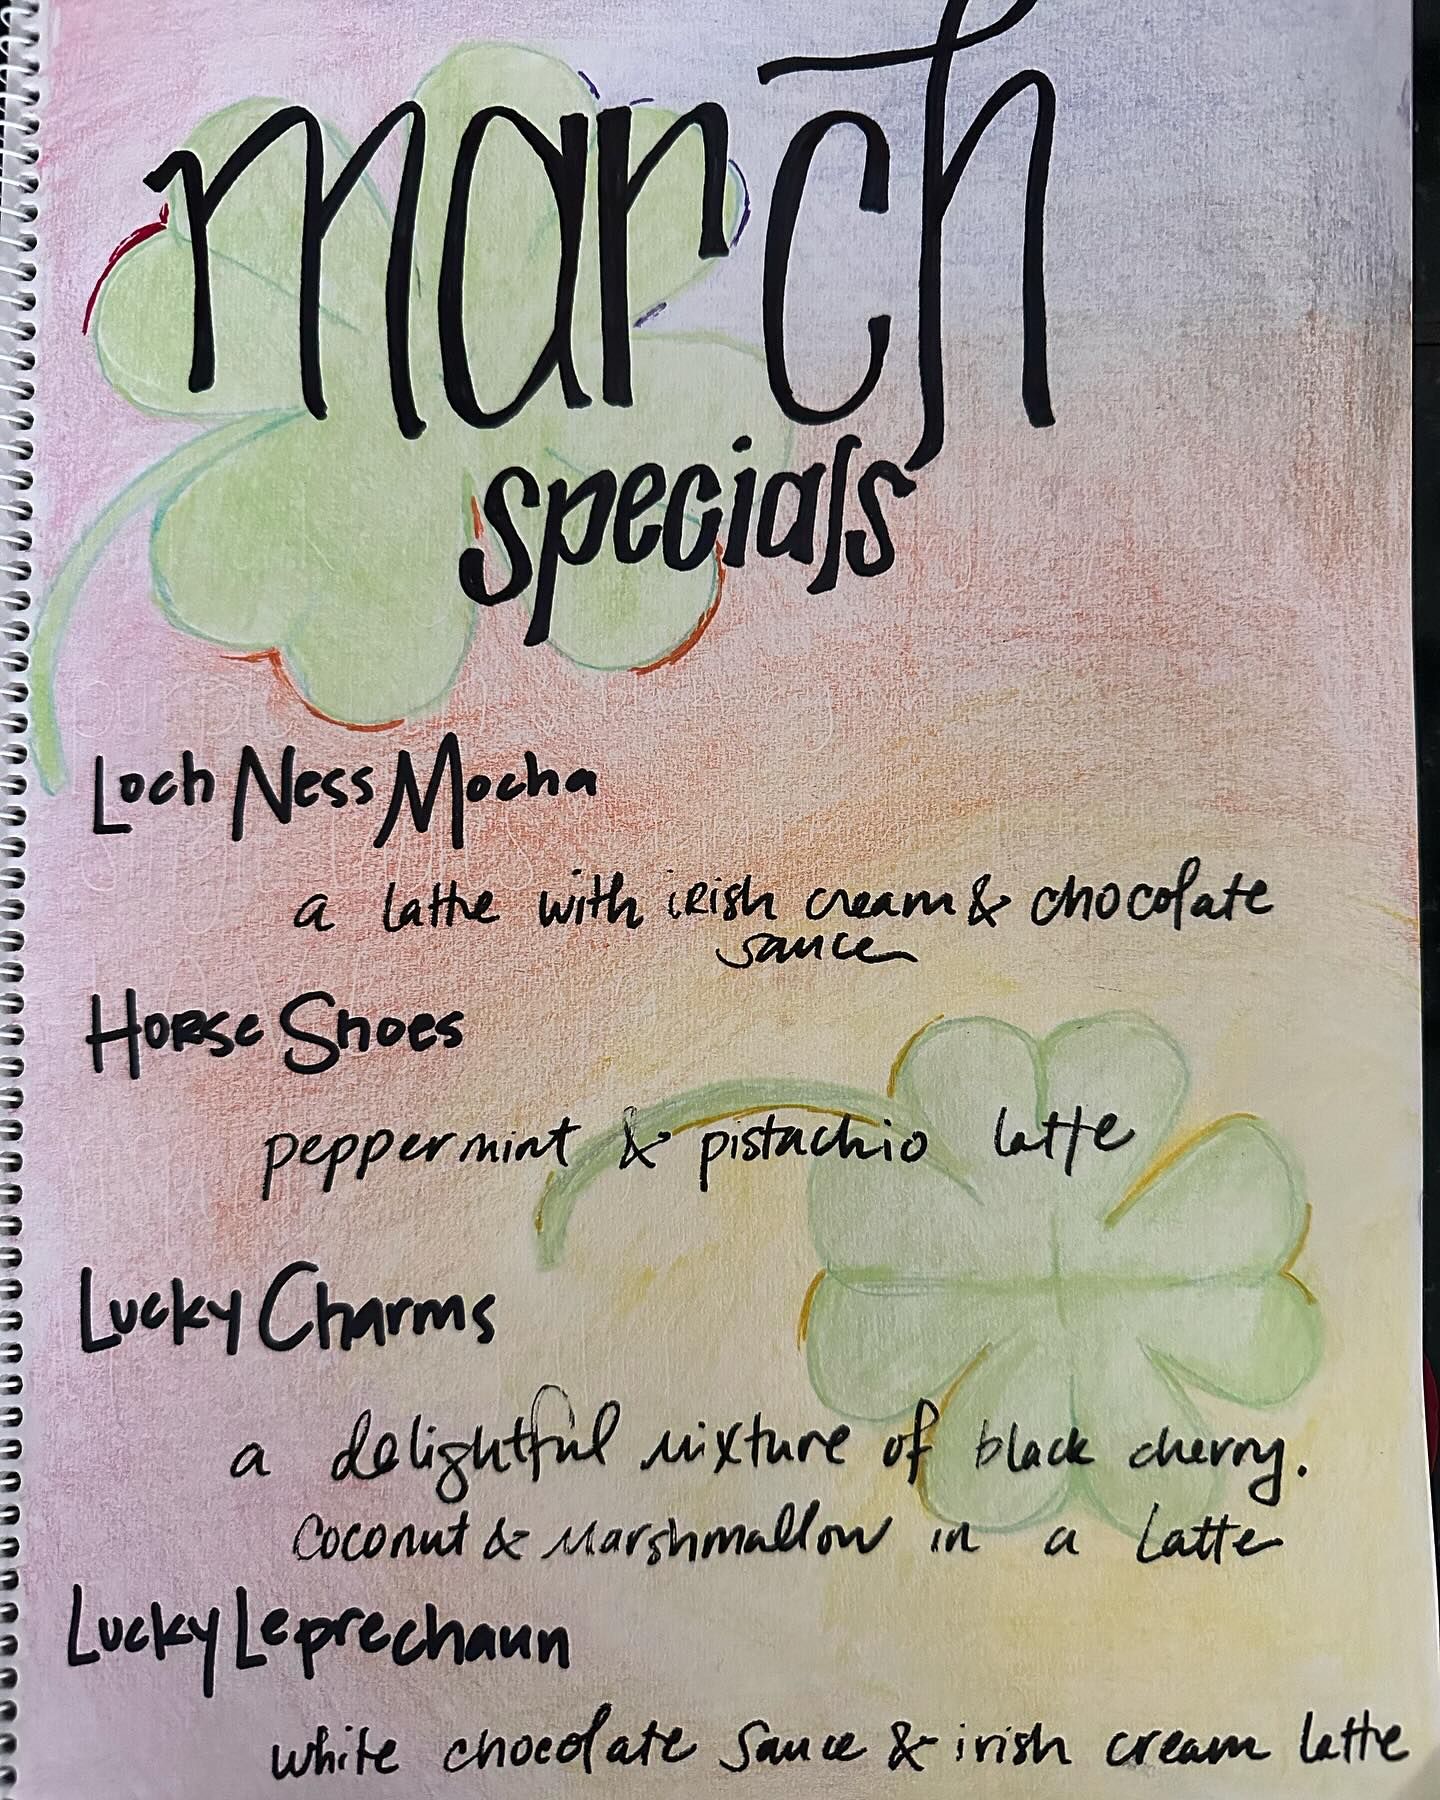 march
specials
Loch Ness Mocha
a latte with irish cream & chocolate
sauce
Horse Shoes
peppermint & pistachio latte
Lucky Charms
a delightful mixture of black cherry.
coconut & marshmallow in a latte
Lucky Leprechaun
white chocolate sauce & irish cream latte